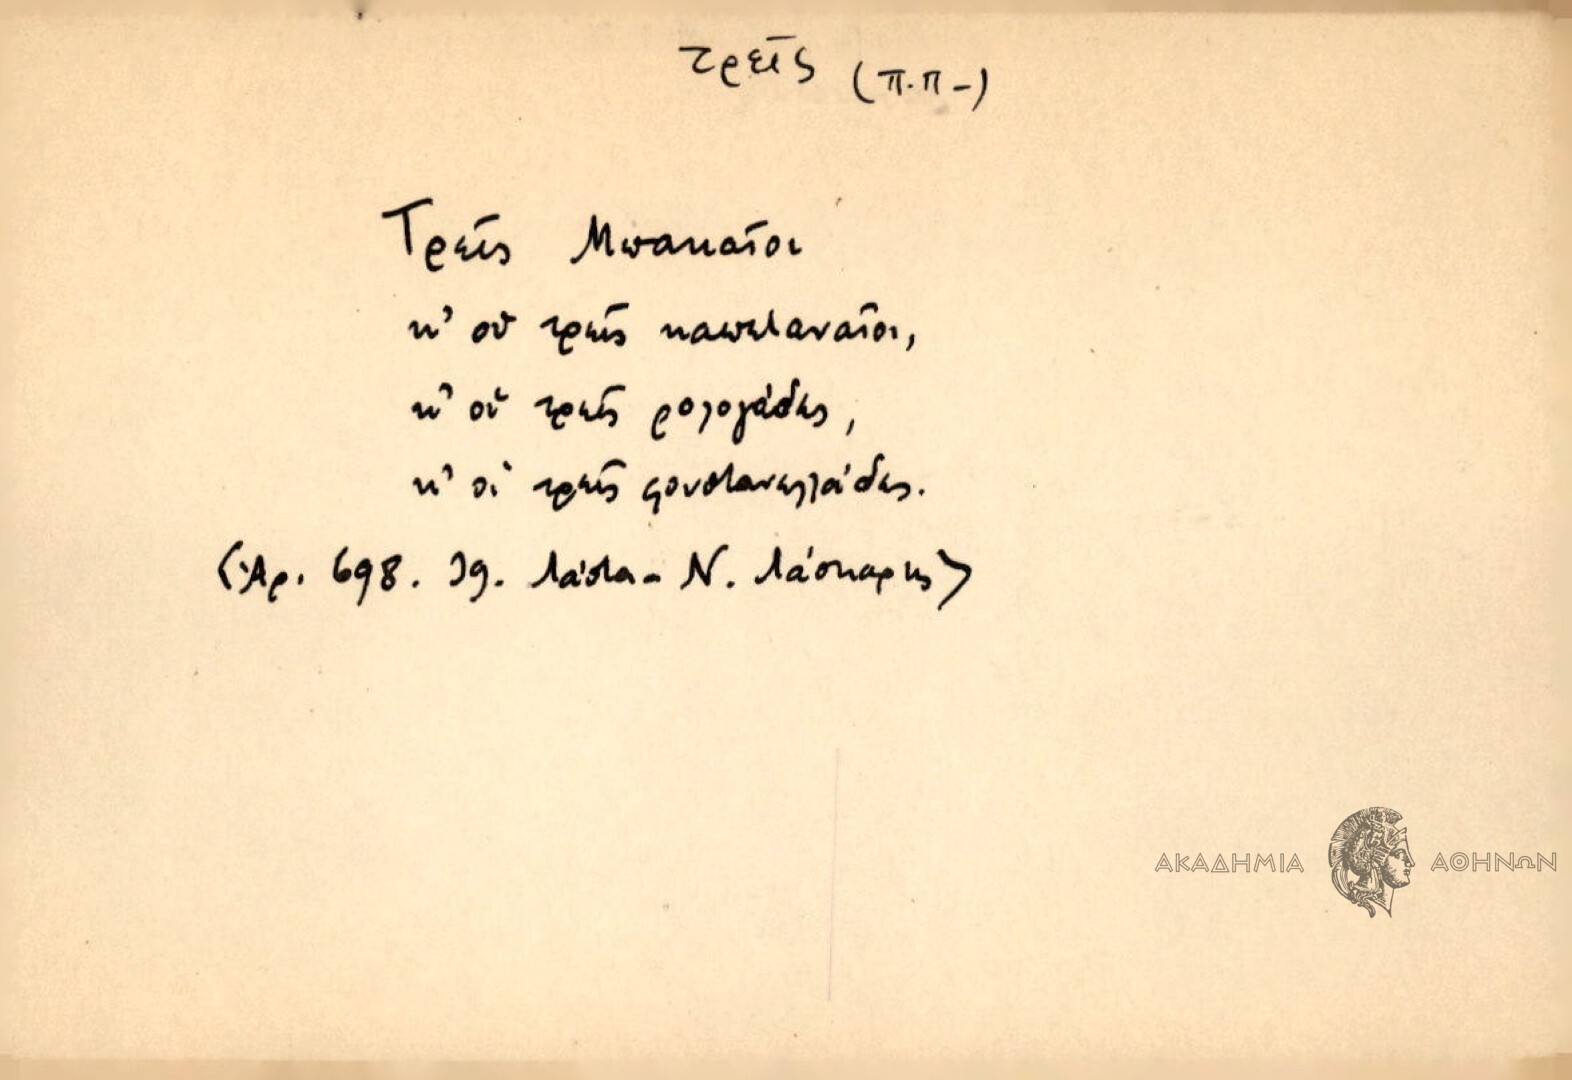 τρεῖς (π.π-)
Τρεῖς Μπακαῖοι
κ' οὐ τρεῖς καπεταναῖοι,
κ' οὐ τρεῖς ρολογάδες,
κ' οἱ τρεῖς φουστανελλάδες.
(Ἀρ. 698. Ν. Λάσκαρης)
ΑΚΑΔΗΜΙΑ ΑΘΗΝΩΝ